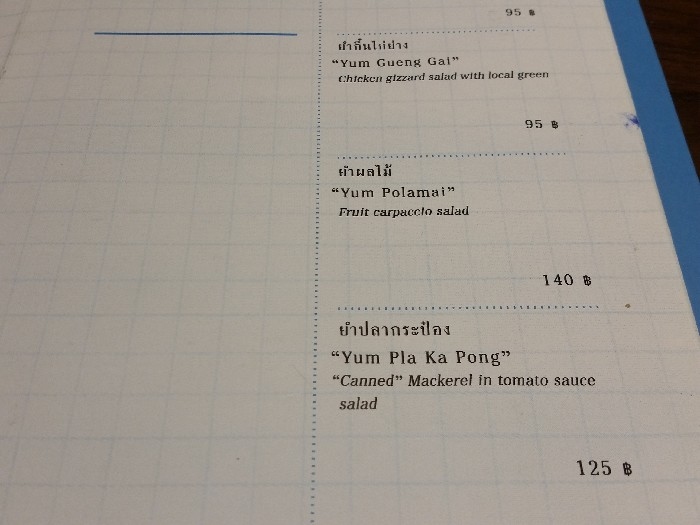 95 ฿
ยำกึ๋นไก่ย่าง
“Yum Gueng Gai”
Chicken gizzard salad with local green
95 ฿
ยำผลไม้
“Yum Polamai”
Fruit carpaccio salad
140 ฿
ยำปลากระป๋อง
“Yum Pla Ka Pong”
“Canned” Mackerel in tomato sauce
salad
125 ฿